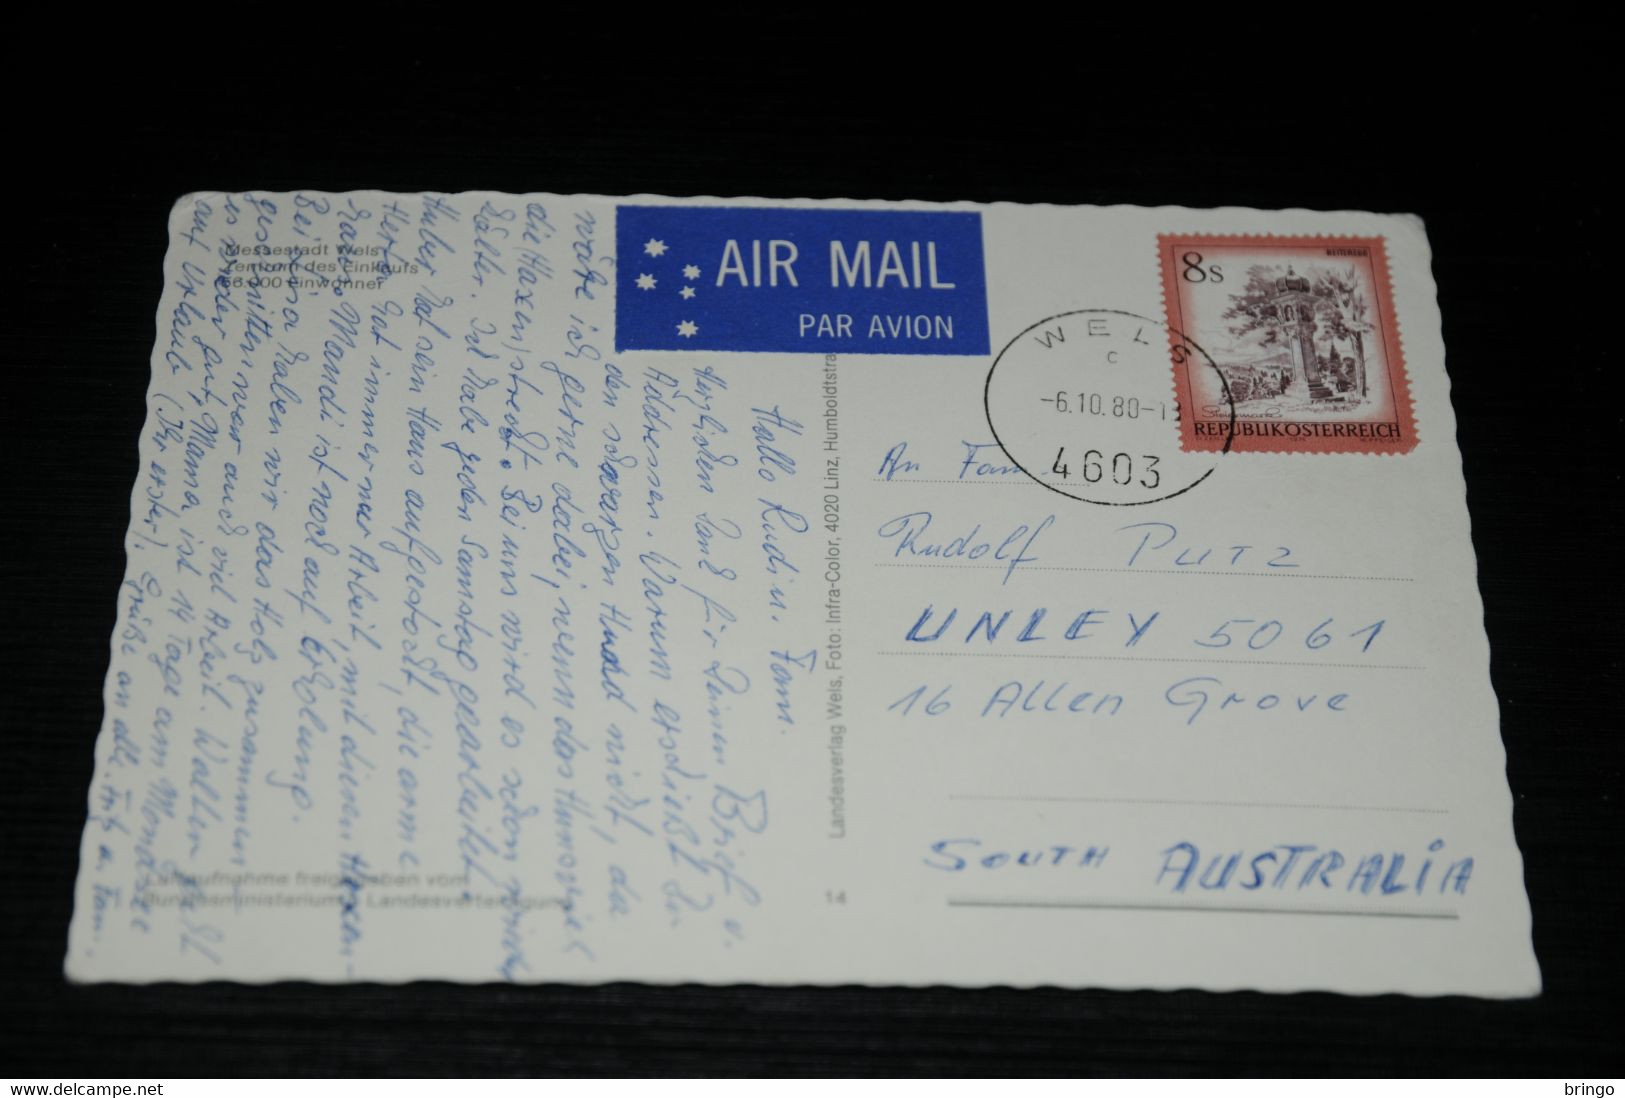 AIR MAIL
PAR AVION
8s
REITEREGG
Steiermark
REPUBLIK ÖSTERREICH
WELS
c
-6.10.80-13
4603
An Fam
Rudolf PUTZ
UNLEY 5061
16 Allen Grove
SOUTH AUSTRALIA
Messestadt Wels
Zentrum des Einkaufs
56.000 Einwohner
Hallo Rudi u. Fam.
Herzlichen Dank für Deinen Brief u.
Addressen. Warum erschießt Du
den schwarzen Hund nicht, da
wäre ich gerne dabei, wenn das
die Haxen streckt. Bei uns wird es schon
kälter. Ich habe jeden Samstag gearbeitet.
Huber hat sein Haus aufgestockt, die arme
Herta hat immer nur Arbeit, mit diesen
Mandi ist noch auf Erholung.
Bei haben wir das Holz zusammen
geschnitten, war auch viel Arbeit.
es wieder gut, Mama ist 14 Tage am Mondsee
auf Urlaub (Ihr erster). Grüße an alle. u. Fam.
Luftaufnahme freigegeben vom
Bundesministerium f. Landesverteidigung
Landesverlag Wels, Foto: Infra-Color, 4020 Linz, Humboldtstra
14
bringo
www.delcampe.net